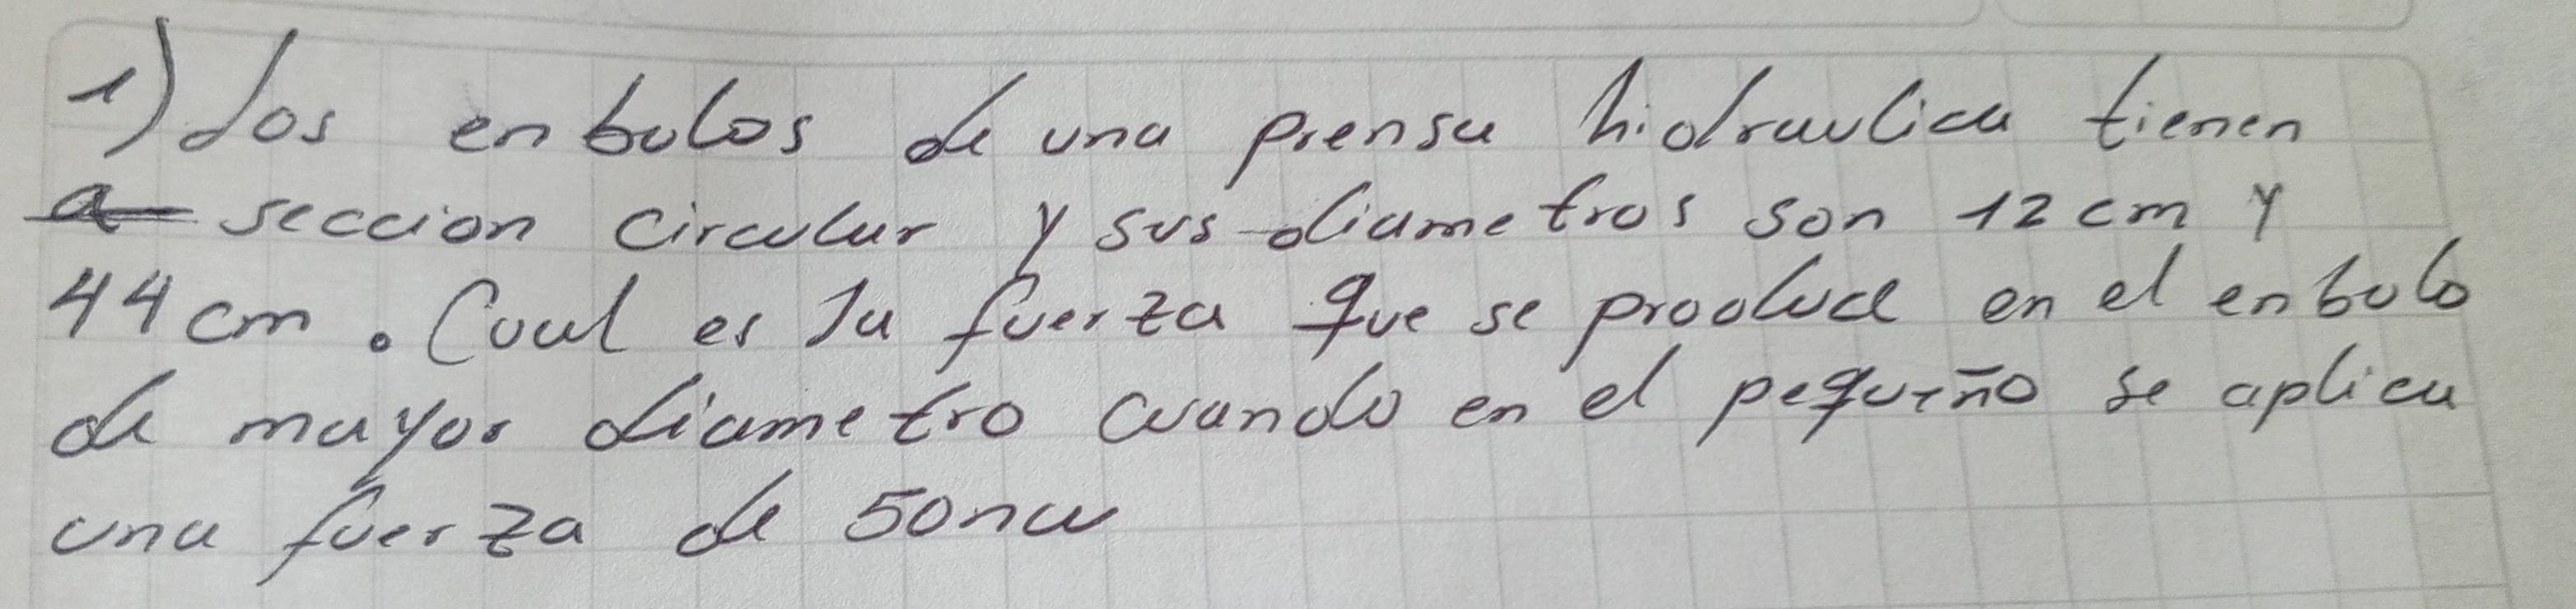 1) Los enbolos de una prensa hidraulica tienen
seccion circular y sus diametros son 12 cm y
44 cm. Cual es la fuerza que se produce en el enbolo
de mayor diametro cuando en el pequeño se aplica
una fuerza de 50nw